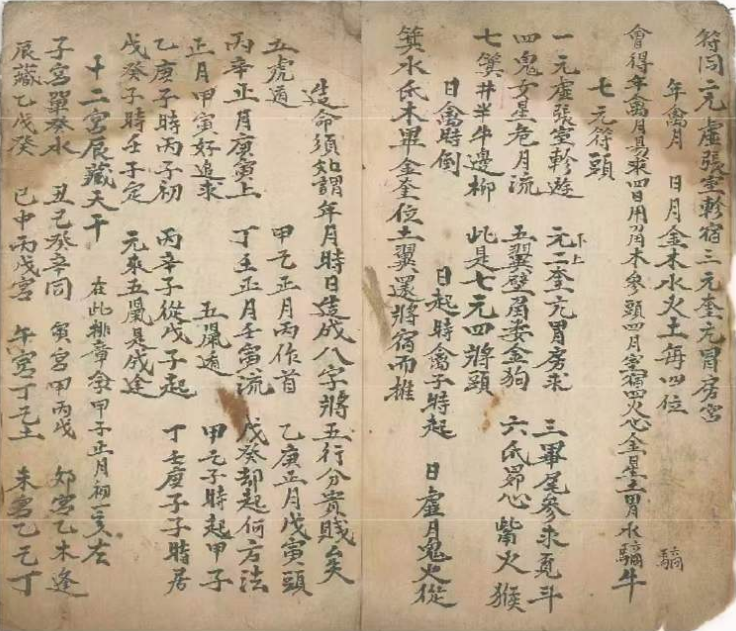 符同二元虛張室軫宿三元奎亢胃房宮
年禽月 日月金木水火土每四位
會得年禽月易求四日用木參頭四月室宿四火心金星土胃水牛
七元符頭
一元虛張室軫遊 元二奎亢胃房求 三畢尾參求鬼斗
四鬼女星危月流 五翼壁角婁金狗 六氐昴心觜火猴
七箕井半牛邊柳 此是七元四將頭
日禽時倒 日起時禽子時起 日虛月鬼火從
箕水氐木畢金奎位土翼還將宿而推
造命須知謂年月時日造成八字將五行分貴賤矣
五虎遁 甲乙正月丙作首 乙庚正月戊寅頭
丙辛正月庚寅上 丁壬正月壬寅流 戊癸却起何方法
正月甲寅好追求 五鼠遁 甲己子時起甲子
乙庚子時丙子初 丙辛子從戊子起 丁壬庚子子時居
戊癸子時壬子定 元來五鼠是成途
十二宮辰藏天干 在此排章每甲子正月初一亥左
子宮單癸水 丑己癸辛同 寅宮甲丙戊 卯宮乙木逢
辰藏乙戊癸 巳中丙戊宮 午宮丁己土 未宮乙己丁